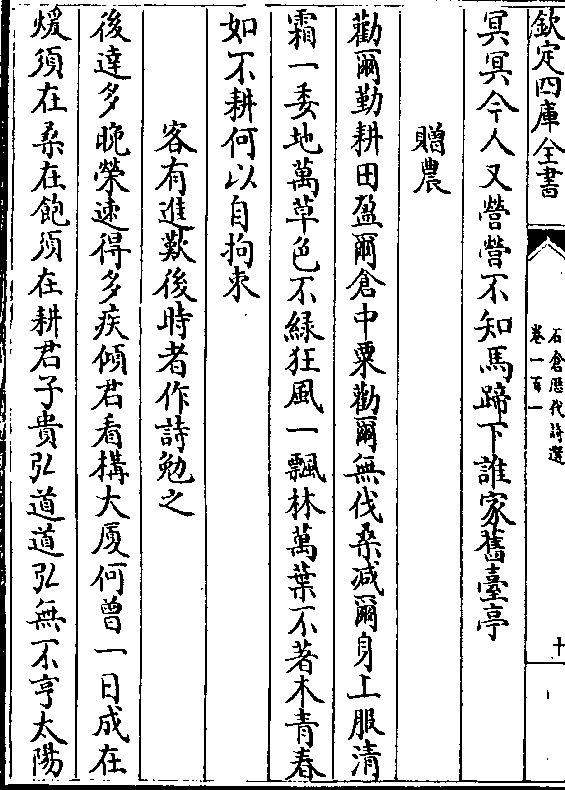 欽定四庫全書
石倉歴代詩選
卷一百一
十
冥冥今人又營營不知馬蹄下誰家舊臺亭
贈農
勸爾勤耕田盈爾倉中粟勸爾無伐桑減爾身上服清
霜一委地萬草色不緑狂風一飄林萬葉不著木青春
如不耕何以自拘束
客有進歎後時者作詩勉之
後達多晩榮速得多疾傾君看構大厦何曾一日成在
煖須在桑在飽須在耕君子貴弘道道弘無不亨太陽